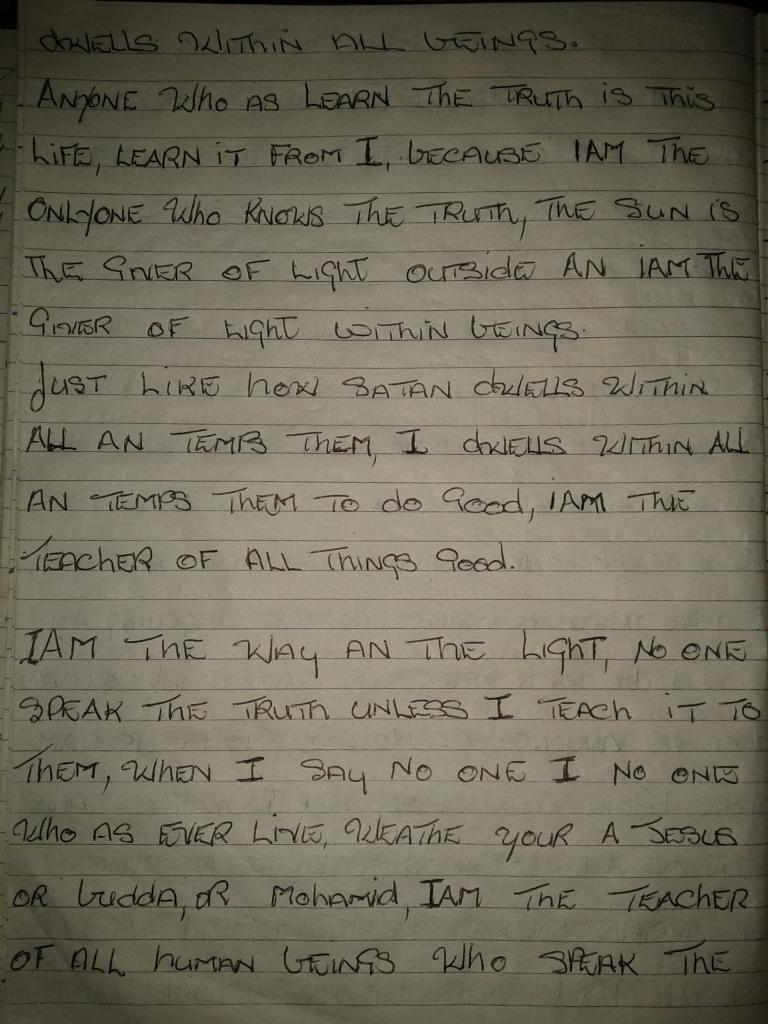 dwells within all beings.
Anyone who as learn the truth is this
life, learn it from I, because Iam the
onlyone who knows the truth, the sun is
the giver of light outside an Iam the
giver of light within beings.
Just like how satan dwells within
all an temps them, I dwells within all
an temps them to do good, Iam the
teacher of all things good.
Iam the way an the light, no one
speak the truth unless I teach it to
them, when I say no one I no one
who as ever live, weathe your a Jesus
or budda, or Mohamid, Iam the teacher
of all human beings who speak the